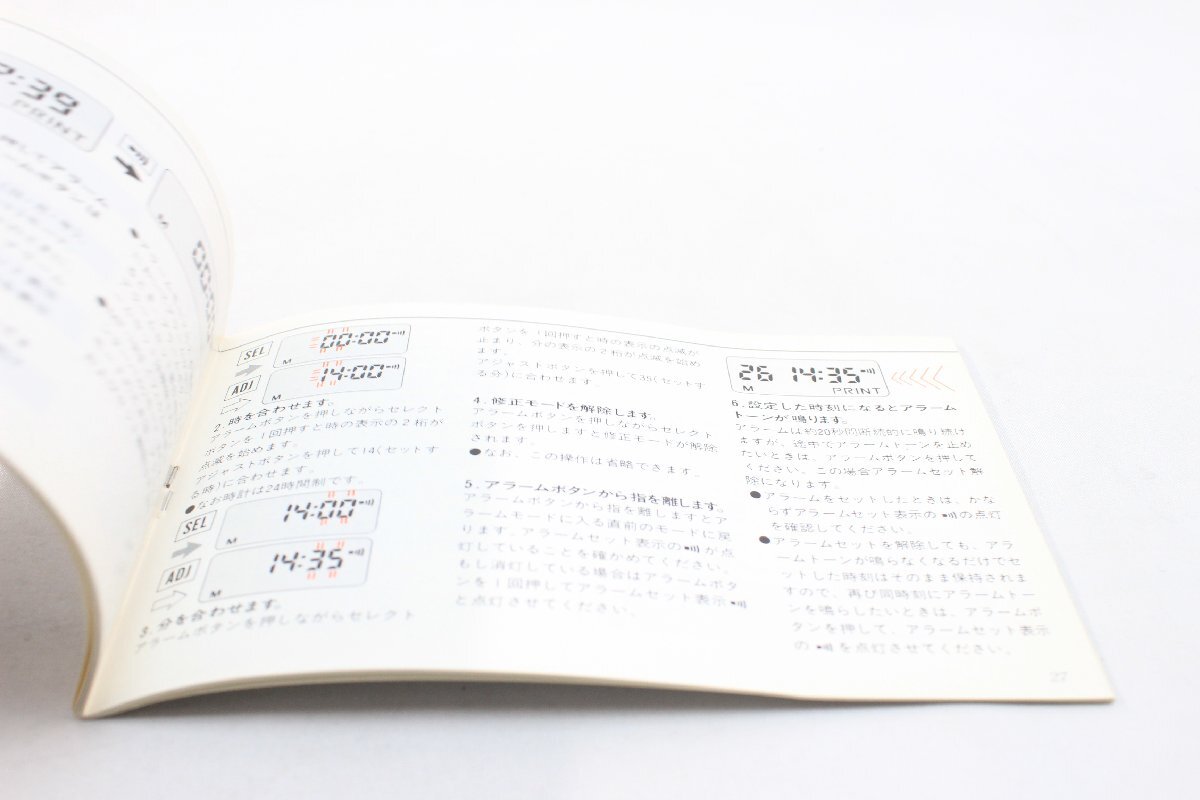 :39
PRINT
押してアラーム
ームボタンは
SEL
00:00
M
ADJ
14:00
M
2. 時を合わせます。
アラームボタンを押しながらセレクト
ボタンを1回押すと時の表示の2桁が
点滅を始めます。
アジャストボタンを押して14(セットす
る時)に合わせます。
●なお時計は24時間制です。
SEL
14:00
M
ADJ
14:35
M
3. 分を合わせます。
アラームボタンを押しながらセレクト
ボタンを1回押すと時の表示の点滅が
止まり、分の表示の2桁が点滅を始め
ます。
アジャストボタンを押して35(セットす
る分)に合わせます。
4. 修正モードを解除します。
アラームボタンを押しながらセレクト
ボタンを押しますと修正モードが解除
されます。
●なお、この操作は省略できます。
5. アラームボタンから指を離します。
アラームボタンから指を離しますとア
ラームモードに入る直前のモードに戻
ります。アラームセット表示の が点
灯していることを確かめてください。
もし消灯している場合はアラームボタ
ンを1回押してアラームセット表示
と点灯させてください。
26 14:35
M PRINT
6. 設定した時刻になるとアラーム
トーンが鳴ります。
アラームは約20秒間断続的に鳴り続け
ますが、途中でアラームトーンを止め
たいときは、アラームボタンを押して
ください。この場合アラームセット解
除になります。
●アラームをセットしたときは、かな
らずアラームセット表示の の点灯
を確認してください。
●アラームセットを解除しても、アラ
ームトーンが鳴らなくなるだけでセ
ットした時刻はそのまま保持されま
すので、再び同時刻にアラームトー
ンを鳴らしたいときは、アラームボ
タンを押して、アラームセット表示
の を点灯させてください。
27